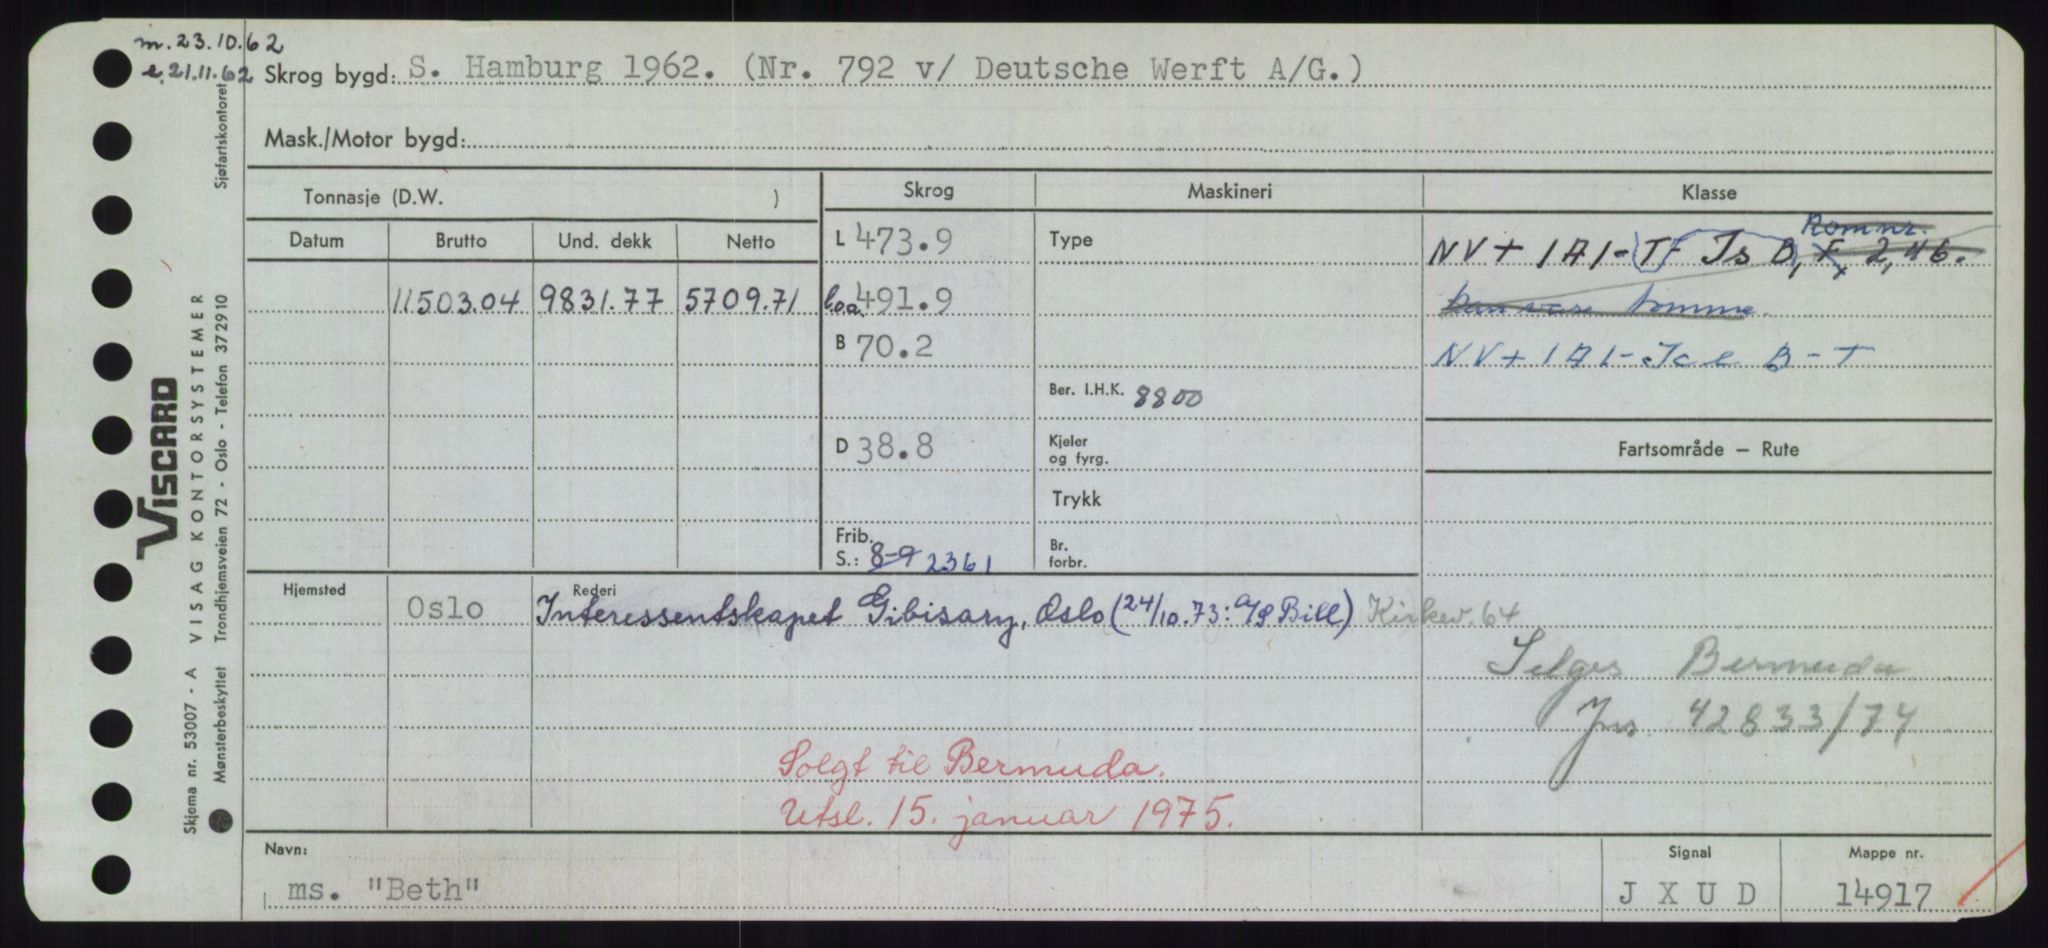 m. 23.10.62
e. 21.11.62 Skrog bygd: S. Hamburg 1962. (Nr. 792 v/ Deutsche Werft A/G.)
Mask./Motor bygd:
Tonnasje (D.W. ) Skrog Maskineri Klasse
Datum Brutto Und. dekk Netto L 473.9 Type NV + 1A1 - TF Is B, F, 2,46. Romnr.
11503.04 9831.77 5709.71 l.o.a 491.9 kan være tomme.
B 70.2 NV + 1A1 - Ice B - T
Ber. I.H.K. 8800
D 38.8 Kjeler og fyrg. Fartsområde – Rute
Trykk
Frib. S.: 8-9 2361 Br. forbr.
Hjemsted Oslo Rederi Interessentskapet Gibisary, Oslo (24/10.73: A/S Bill) Kirkev. 64
Selges Bermuda
Jnr. 42833/74
Solgt til Bermuda.
Utsl. 15. januar 1975.
Navn: ms. "Beth" Signal J X U D Mappe nr. 14917
VISCARD
Skjema nr. 53007 - A VISAG KONTORSYSTEMER
Mønsterbeskyttet Trondhjemsveien 72 - Oslo - Telefon 372910 Sjøfartskontoret